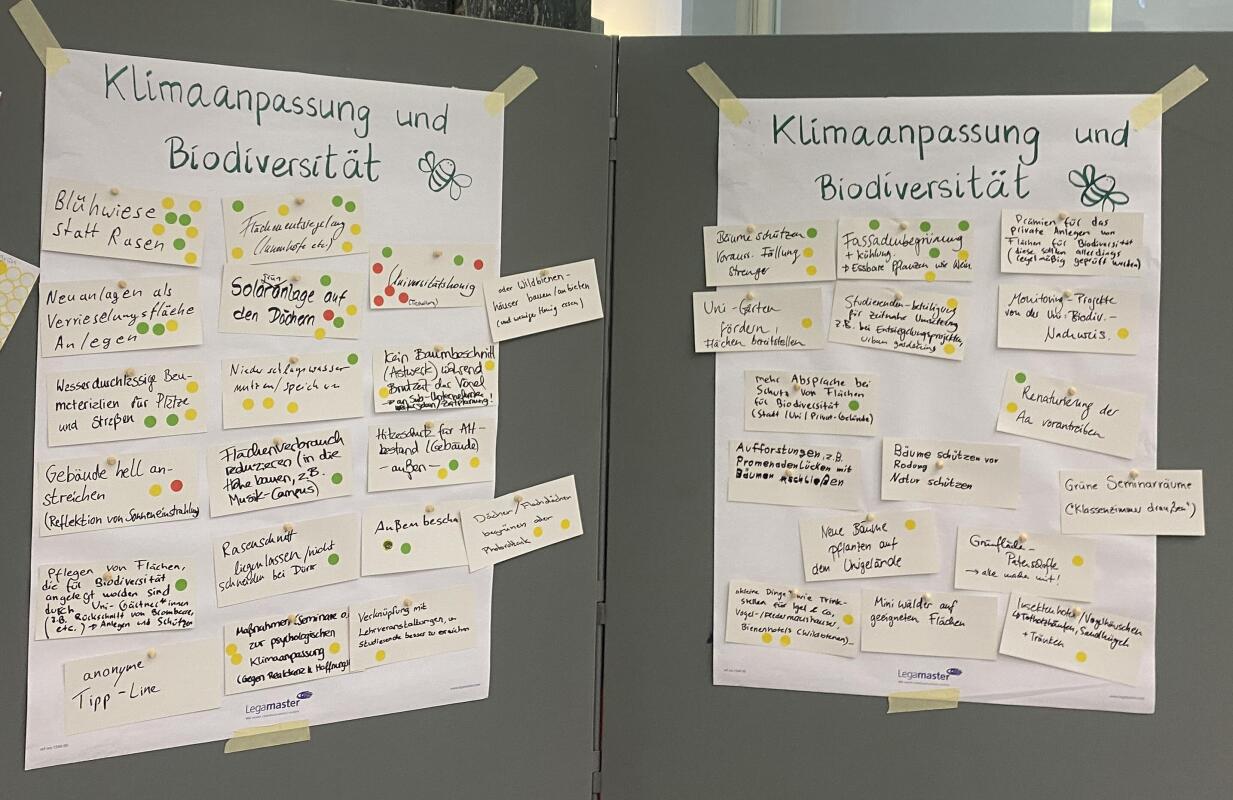 Klimaanpassung und
Biodiversität
Blühwiese
statt Rasen
Flächenentsiegelung
(Innenhöfe etc.)
Universitätshonig
oder Wildbienen-
häuser bauen/anbieten
(und wenige Honig essen)
Neuanlagen als
Verrieselungsfläche
Anlegen
grün
Solaranlage auf
den Dächern
Wasserdurchlässige Bau-
materialien für Plätze
und Straßen
Niederschlagswasser
nutzen/speichern
Kein Baumbeschnitt
(Astwerk) während
Brutzeit der Vögel
→ an Sub-Unternehmen
weitergeben/Zeitplanung!
Gebäude hell an-
streichen
(Reflektion von Sonneneinstrahlung)
Flächenverbrauch
reduzieren (in die
Höhe bauen, z.B.
Musik-Campus)
Hitzeschutz für Alt-
bestand (Gebäude)
– außen –
Pflegen von Flächen,
die für Biodiversität
angelegt worden sind
durch Uni-Gärtner*innen
(z.B. Rückschnitt von Brombeere,
etc.) → Anlegen und Schützen
Rasenschnitt
liegenlassen/nicht
schneiden bei Dürre
Außenbescha
Dächer/Flachdächen
begrünen oder
Photovoltaik
anonyme
Tipp-Line
Maßnahmen (Seminare o.
zur psychologischen
Klimaanpassung
(Gegen Reaktanz & Hoffnungsl
Verknüpfung mit
Lehrveranstaltungen, um
Studierende besser zu erreichen
Legamaster
Klimaanpassung und
Biodiversität
Bäume schützen
Vorauss. Fällung
strenger
Fassadenbegrünung
+ kühlung.
→ Essbare Pflanzen wie Wein
Prämien für das
private Anlegen von
Flächen für Biodiversität
(diese sollen allerdings
regelmäßig geprüft werden)
Uni-Gärten
fördern,
Flächen bereitstellen
Studierenden-beteiligung
für zeitnahe Umsetzung
z.B. bei Entsiegelungsprojekten,
urban gardening
Monitoring-Projekte
von der Uni: Biodiv.-
Nachweis.
mehr Absprache bei
Schutz von Flächen
für Biodiversität
(Stadt/Uni/Privat-Gelände)
Renaturierung der
Aa vorantreiben
Aufforstungen, z.B.
Promenadenlücken mit
Bäumen schließen
Bäume schützen vor
Rodung
Natur schützen
Grüne Seminarräume
("Klassenzimmer draußen")
Neue Bäume
pflanten auf
dem Unigelände
Grünfläche-
Patenschafte
→ alle machen mit!
"kleine Dinge" wie Trink-
stellen für Igel & Co,
Vogel-/Fledermaushäuser,
Bienenhotels (Wildbienen)
Mini Wälder auf
geeigneten Flächen
Insektenhotel/Vogelhäuschen
↳ Totholzhaufen, Sandhügel
+ Tränken
Legamaster